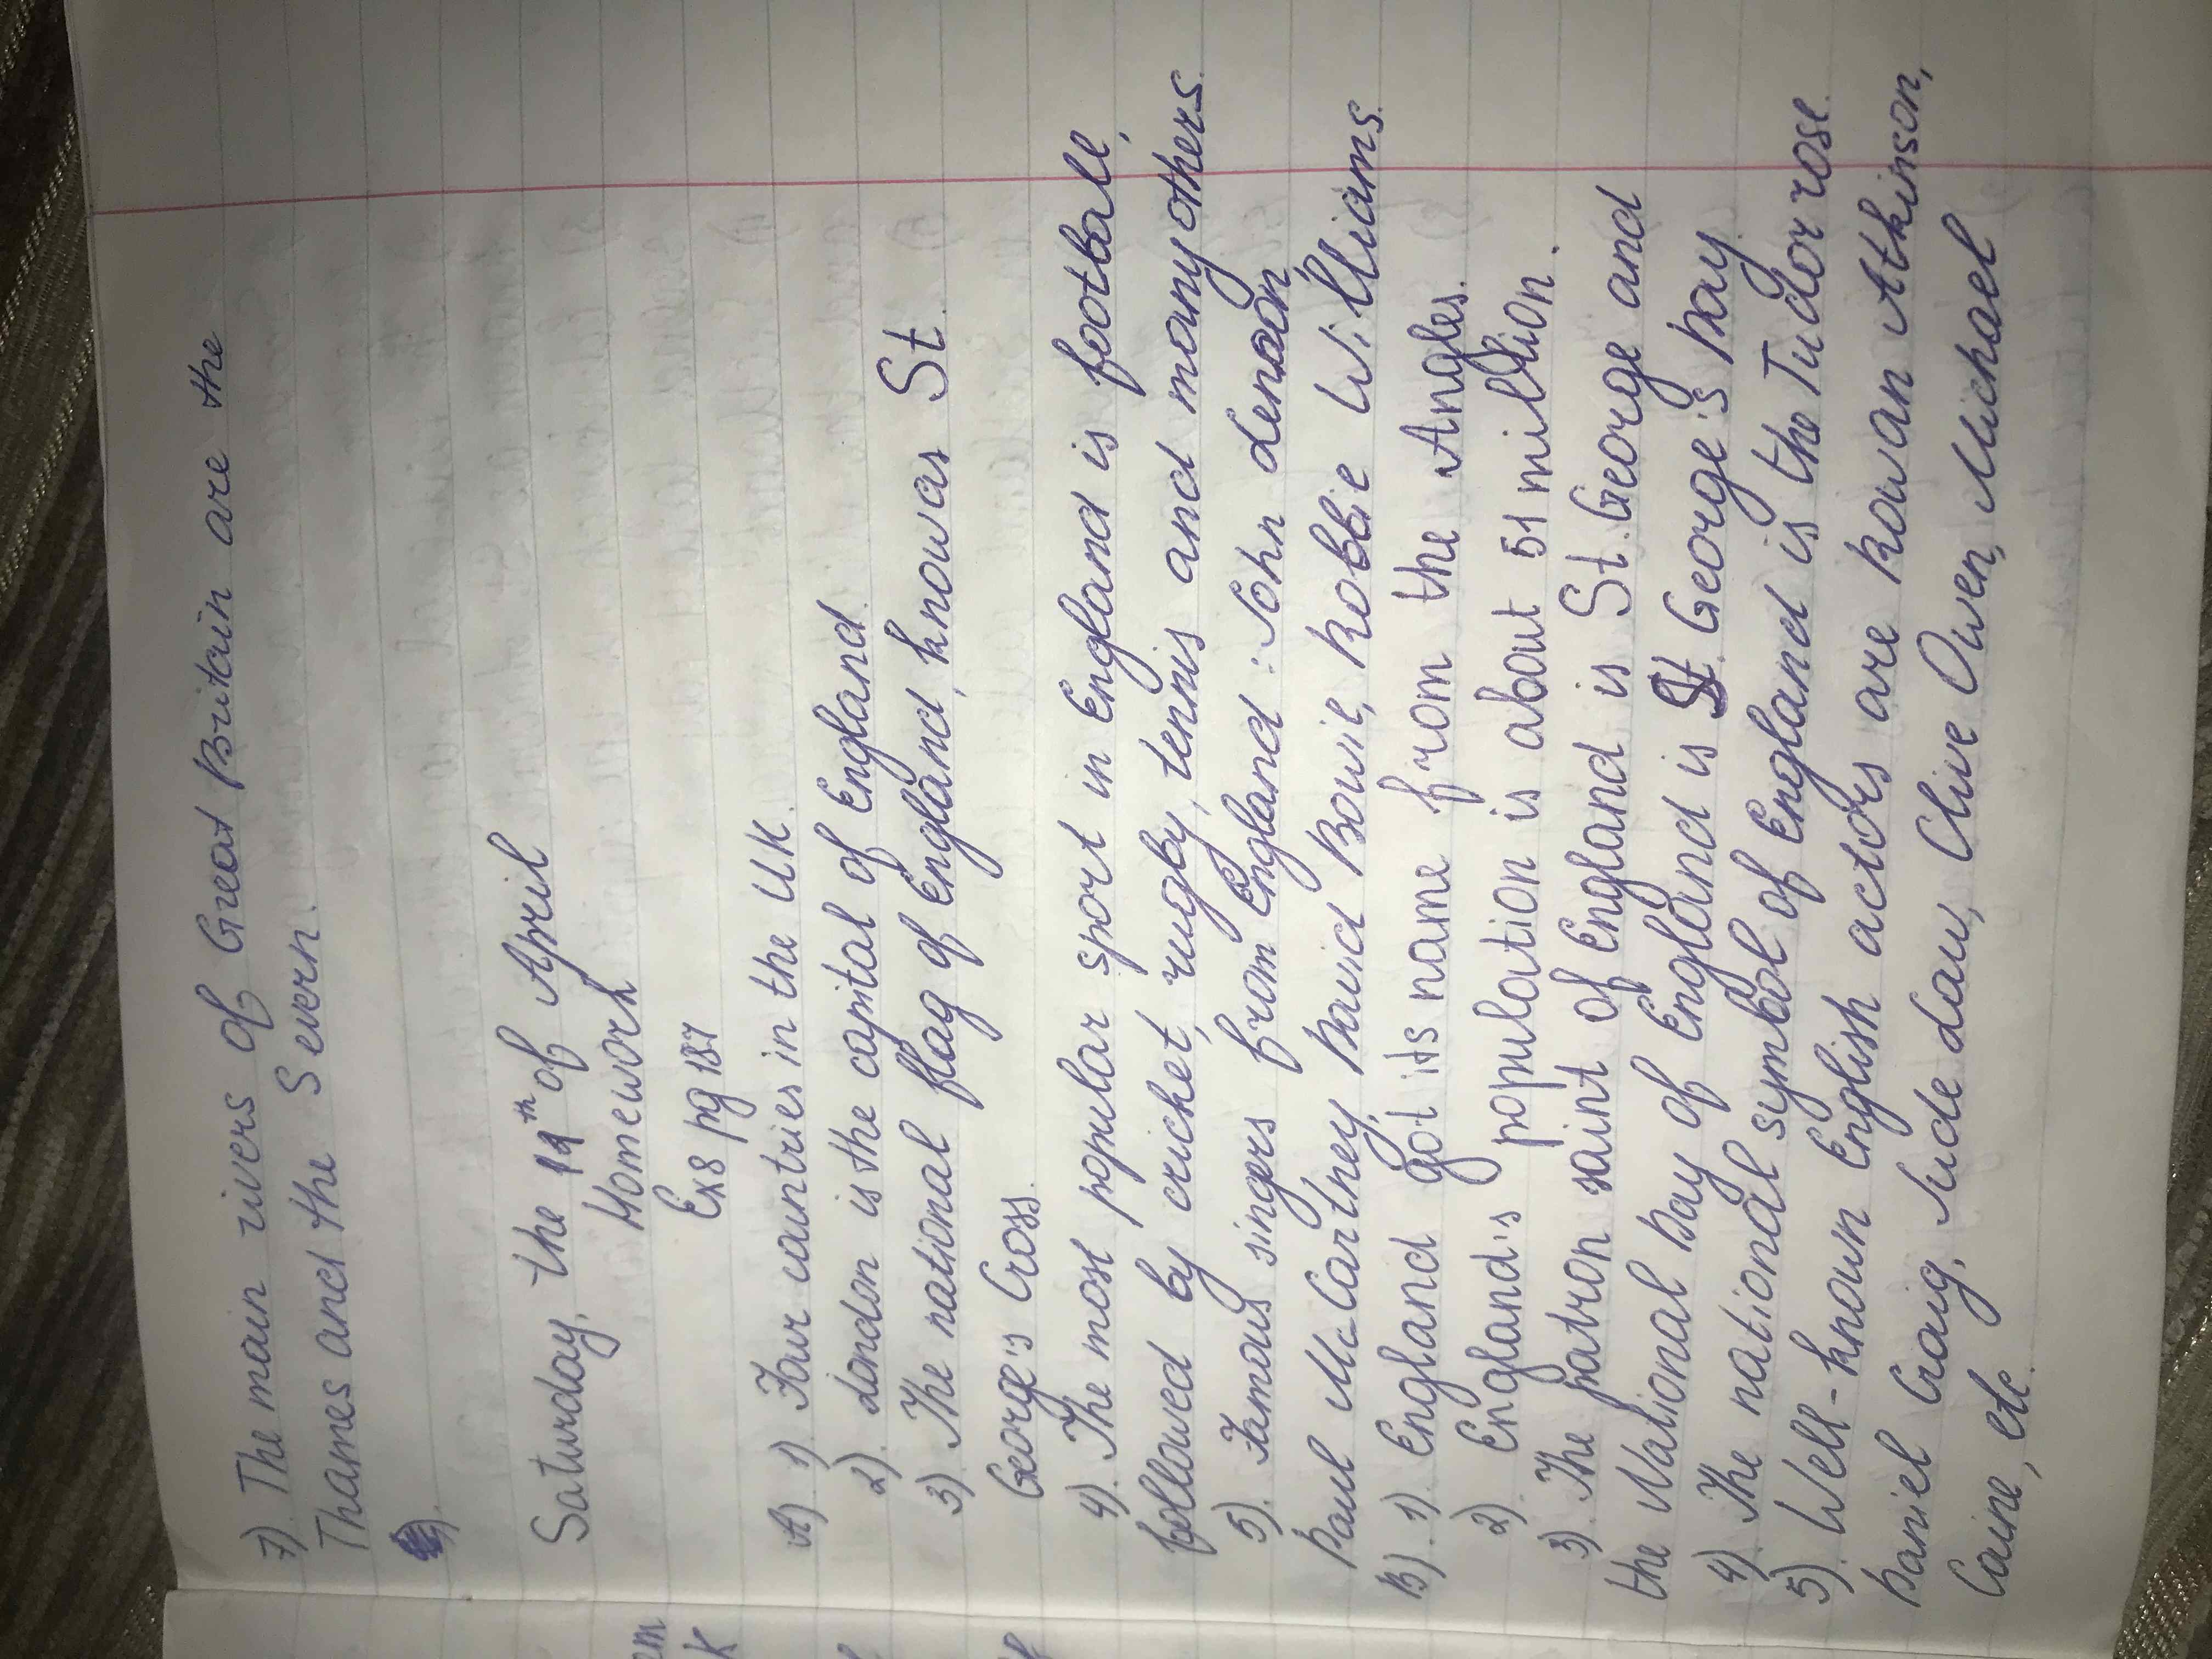 7). The main rivers of Great Britain are the
Thames and the Severn.
Saturday, the 19th of April
Homework
Ex8 pg 187
A) 1) Four countries in the UK.
2) London is the capital of England.
3) The national flag of England, knowas St.
George's Cross.
4) The most popular sport in England is football,
followed by cricket, rugby, tennis and many others.
5). Famous singers from England: John Lennon,
Paul McCarthey, David Bowie, Robbie Williams.
B). 1) England got its name from the Angles.
2) England's population is about 51 million.
3) The patron saint of England is St. George and
the National Day of England is St. George's Day.
4) The national symbol of England is the Tudor rose.
5) Well-known English actors are Rowan Atkinson,
Daniel Craig, Jude Law, Clive Owen, Michael
Caine, etc.
em
K